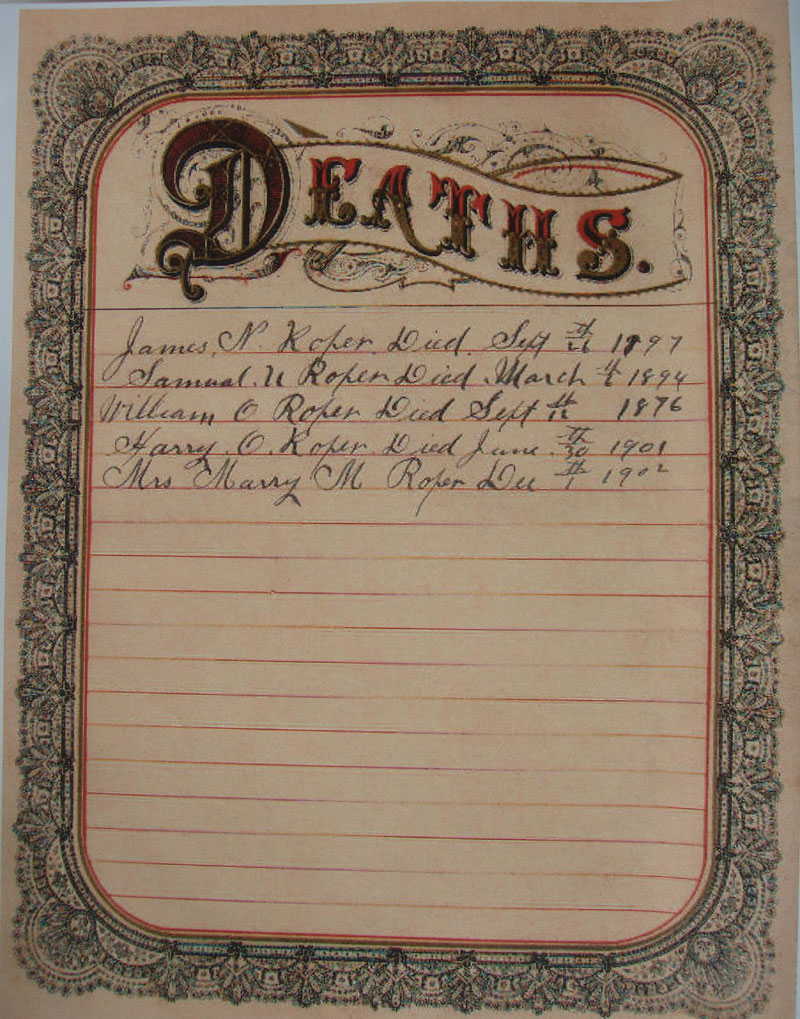 DEATHS.
James. N. Roper. Died. Sept th/26 1897
Samual. U Roper Died. March 4 1894
William O Roper Died Sept th/12 1876
Harry. O. Roper. Died June. th/30 1901
Mrs Marry M Roper th/1 1902